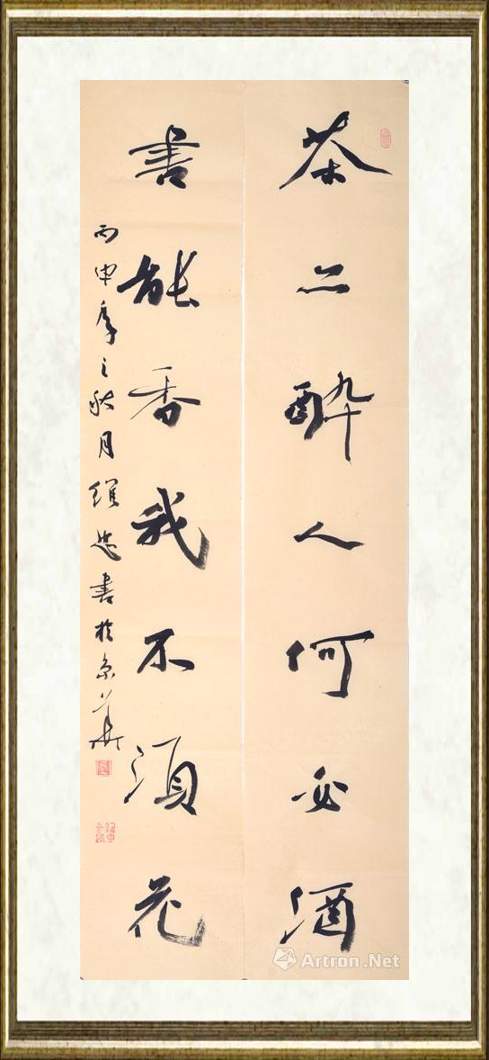 茶亦醉人何必酒
书能香我不须花
丙申年之秋月維忠書於京華
Artron.Net